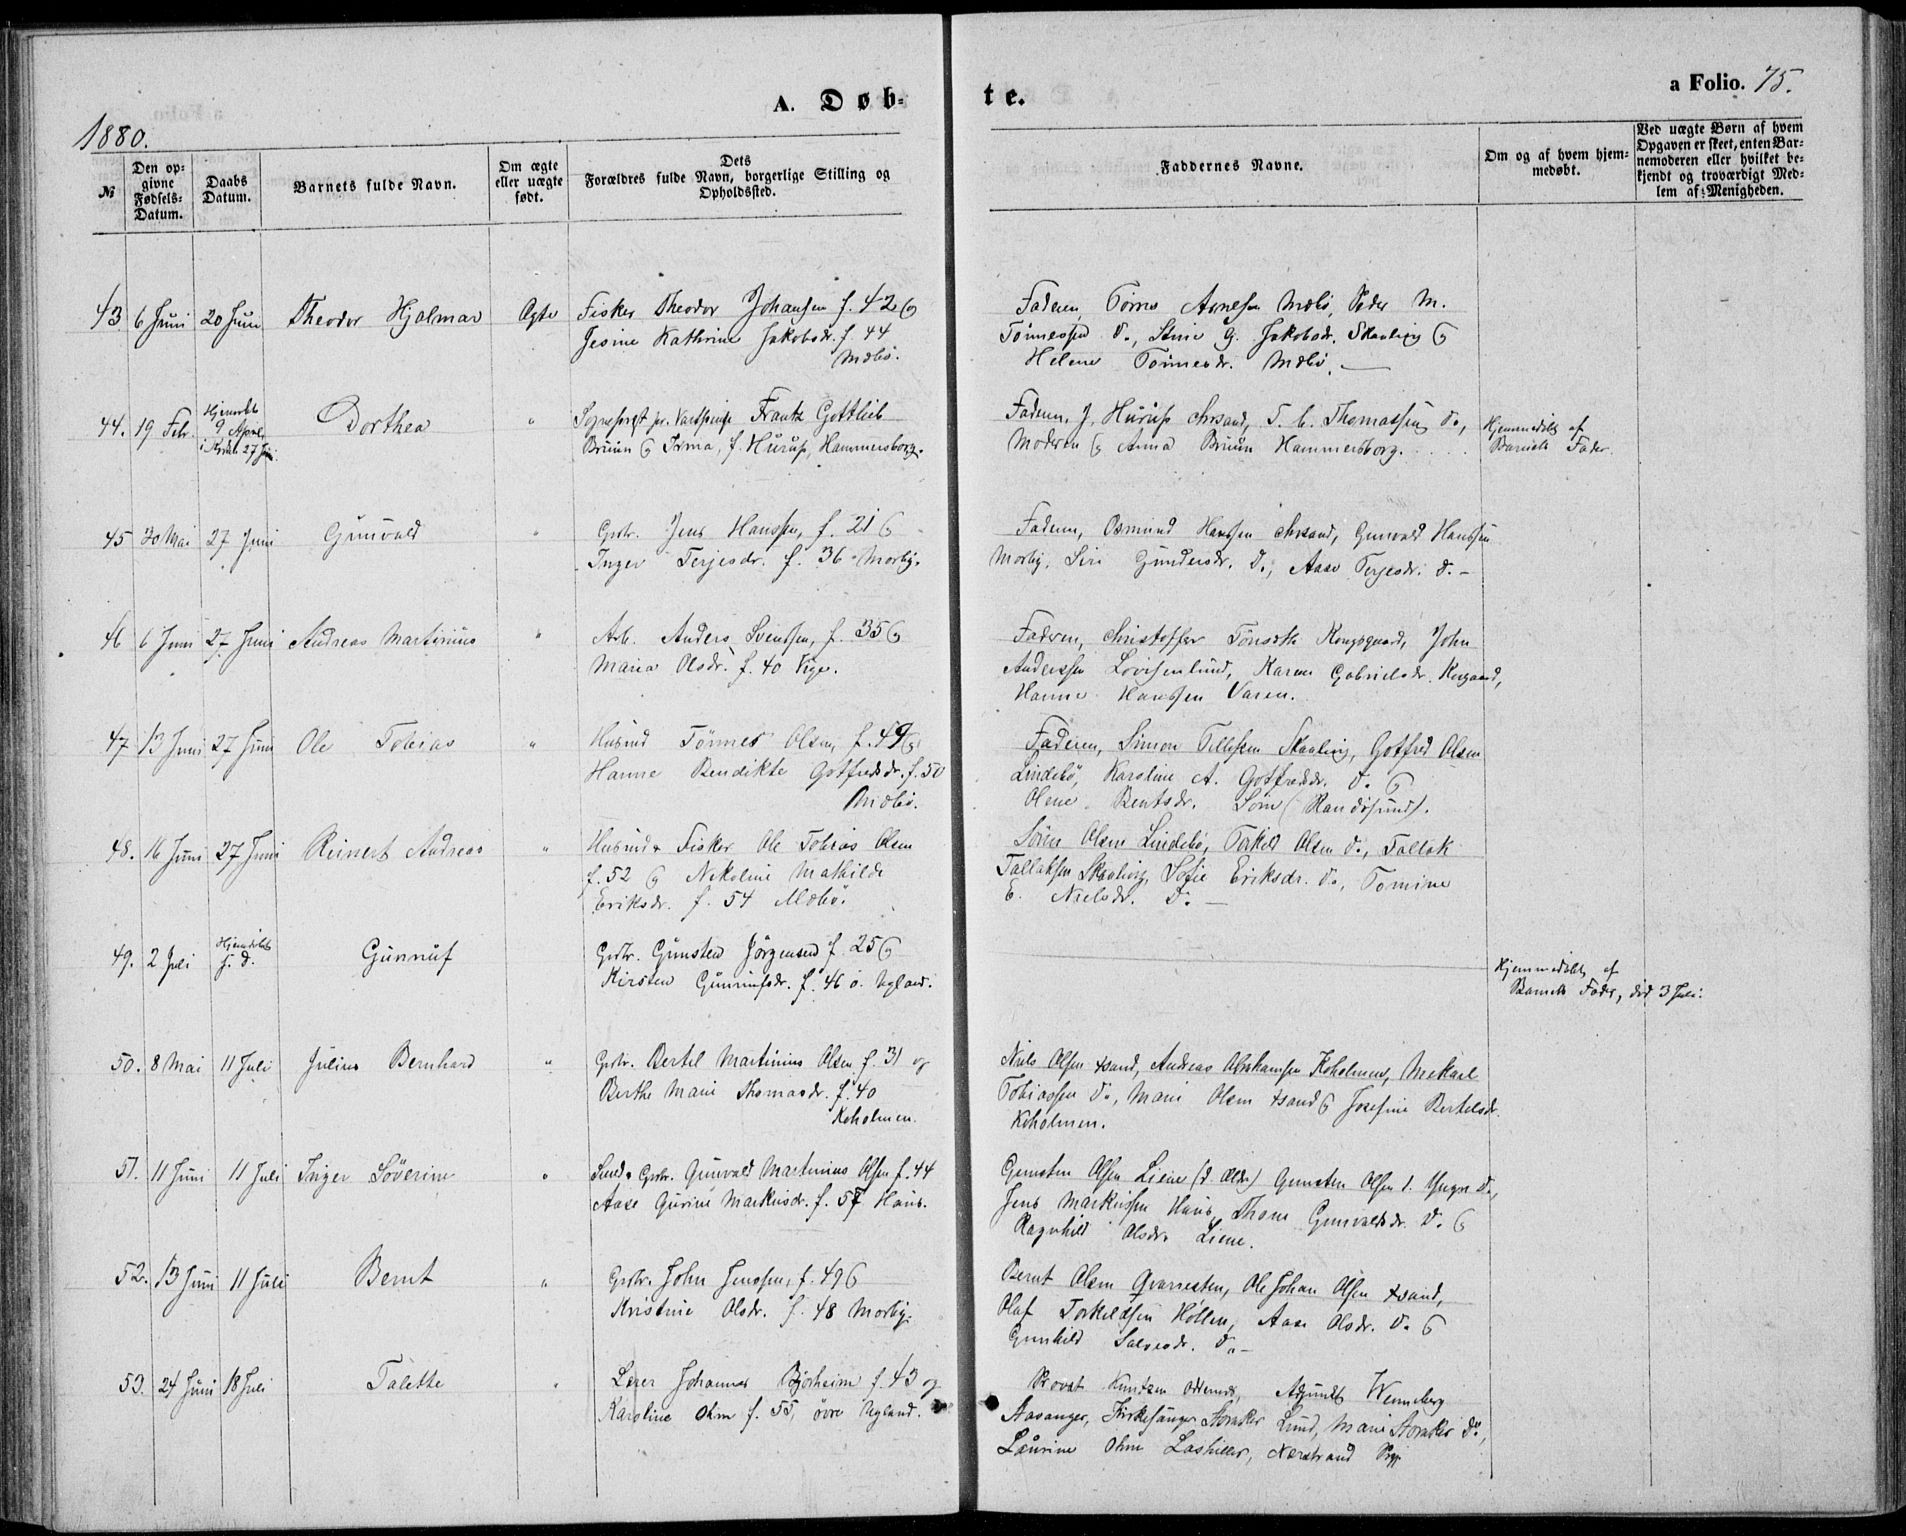 A. Døb-
te.
a Folio. 75.
1880.
№
Den op-
givne
Fødsels-
Datum.
Daabs
Datum.
Barnets fulde Navn.
Om ægte
eller uægte
født.
Dets
Forældres fulde Navn, borgerlige Stilling og
Opholdssted.
Faddernes Navne.
Om og af hvem hjem-
medøbt.
Ved uægte Børn af hvem
Opgaven er skeet, enten Bar-
nemoderen eller hvilket be-
kjendt og troværdigt Med-
lem af Menigheden.
43 6 Juni 20 Juni Theodor Hjalmar Ægte Fisker Theodor Johansen f. 42 &
Jesine Kathrine Jakobsdr. f. 44
Mæbø.
Faderen, Tørres Arnesen Mæbø, Peder M.
Tønnessen do., Stine G. Jakobsdr. Skaalevig &
Helene Tønnesdr. Mæbø.
44. 19 Febr. Hjemdøbt
9 April,
i Kirke 27 Juni
Dorthea " Sogneprest Frantz Gottlieb
Bruun & Irma, f. Hurup, Hammersborg.
Faderen, J. Hurup Chrsand, T. C. Thomassen do.,
Moderen & Anna Bruun Hammersborg.
Hjemmedøbt af
Barnets Fader.
45 30 Mai 27 Juni Gunvald " Grbr. Jens Hanssen, f. 21 &
Inger Terjesdr. f. 36 Morby.
Faderen, Osmund Hanssen Chrsand, Gunvald Hanssen
Morby, Siri Gundersdr. do., Aase Terjesdr. do. –
46 6 Juni 27 Juni Andreas Martinius " Arb. Anders Svenssen, f. 35 &
Maria Olsdr. f. 40 Vige.
Faderen, Christoffer Kongsgaard, John
Anderssen Lovisenlund, Karen Gabrielsdr. Kongsgaard,
Hanne Hanssen Varen.
47 13 Juni 27 Juni Ole Tobias " Husmd Tønnes Olsen, f. 49 &
Hanne Bendikte Gotfredsdr. f. 50
Mæbø.
Faderen, Simon Tellefsen Skaalevig, Gotfred Olsen
Lindebø, Karoline A. Gotfredsdr. do. &
Olene Bentsdr. (Randøsund).
48. 16 Juni 27 Juni Reinert Andreas " Husmd & Fisker Ole Tobias Olsen
f. 52 & Nikoline Mathilde
Eriksdr. f. 54 Mæbø.
Søren Olsen Lindebø, Terkild Olsen do., Tallak
Tallaksen Skaalevig, Sofie Eriksdr. do., Tomine
E. Nielsdr. do. –
49. 2 Juli Hjemdøbt
s. d.
Gunnuf Grbr. Gunsten Jörgensen f. 25 &
Kirsten Gunnufsdr. f. 46 ö. Ugland.
Hjemmedøbt af
Barnets Fader, död 3 Juli.
50. 8 Mai 11 Juli Julius Bernhard " Grbr. Bertel Martinius Olsen f. 31 og
Berthe Marie Thomasdr. f. 40
Koholmen.
Niels Olsen Xsand, Andreas Abrahamsen Koholmen, Mekael
Tobiassen do., Marie Olsen Xsand & Josefine Bertelsdr.
Koholmen.
51. 11 Juni 11 Juli Inger Söverine " Smed & Grbr. Gunvald Martinius Olsen f. 44
Aase Gurine Markusdr. f. 57 Haus.
Gunsten Olsen Liene (d Ældr) Gunsten Olsen d. Yngre do.,
Jens Markussen Haus, Thone Gunvaldsdr. do. &
Ragnhild Olsdr. Liene.
52. 13 Juni 11 Juli Bernt " Grbr. John Jenssen, f. 49 &
Kristine Olsdr. f. 48 Morby.
Bernt Olsen Qvarresten, Ole Johan Olsen Xsand,
Olaf Torkeldsen Höllen, Aase Olsdr. do. &
Gunhild Salvesdr. do. –
53. 24 Juni 18 Juli Talette " Lærer Johannes Bjorheim f. 43 og
Karoline Ohm f. 55, övre Ugland.
Provst Knutzen Oddernes, Wenneberg
Aasanger, Kirkesanger Stomker Lund, Marie Stomker do.,
Laurine Ohm Nærstrand